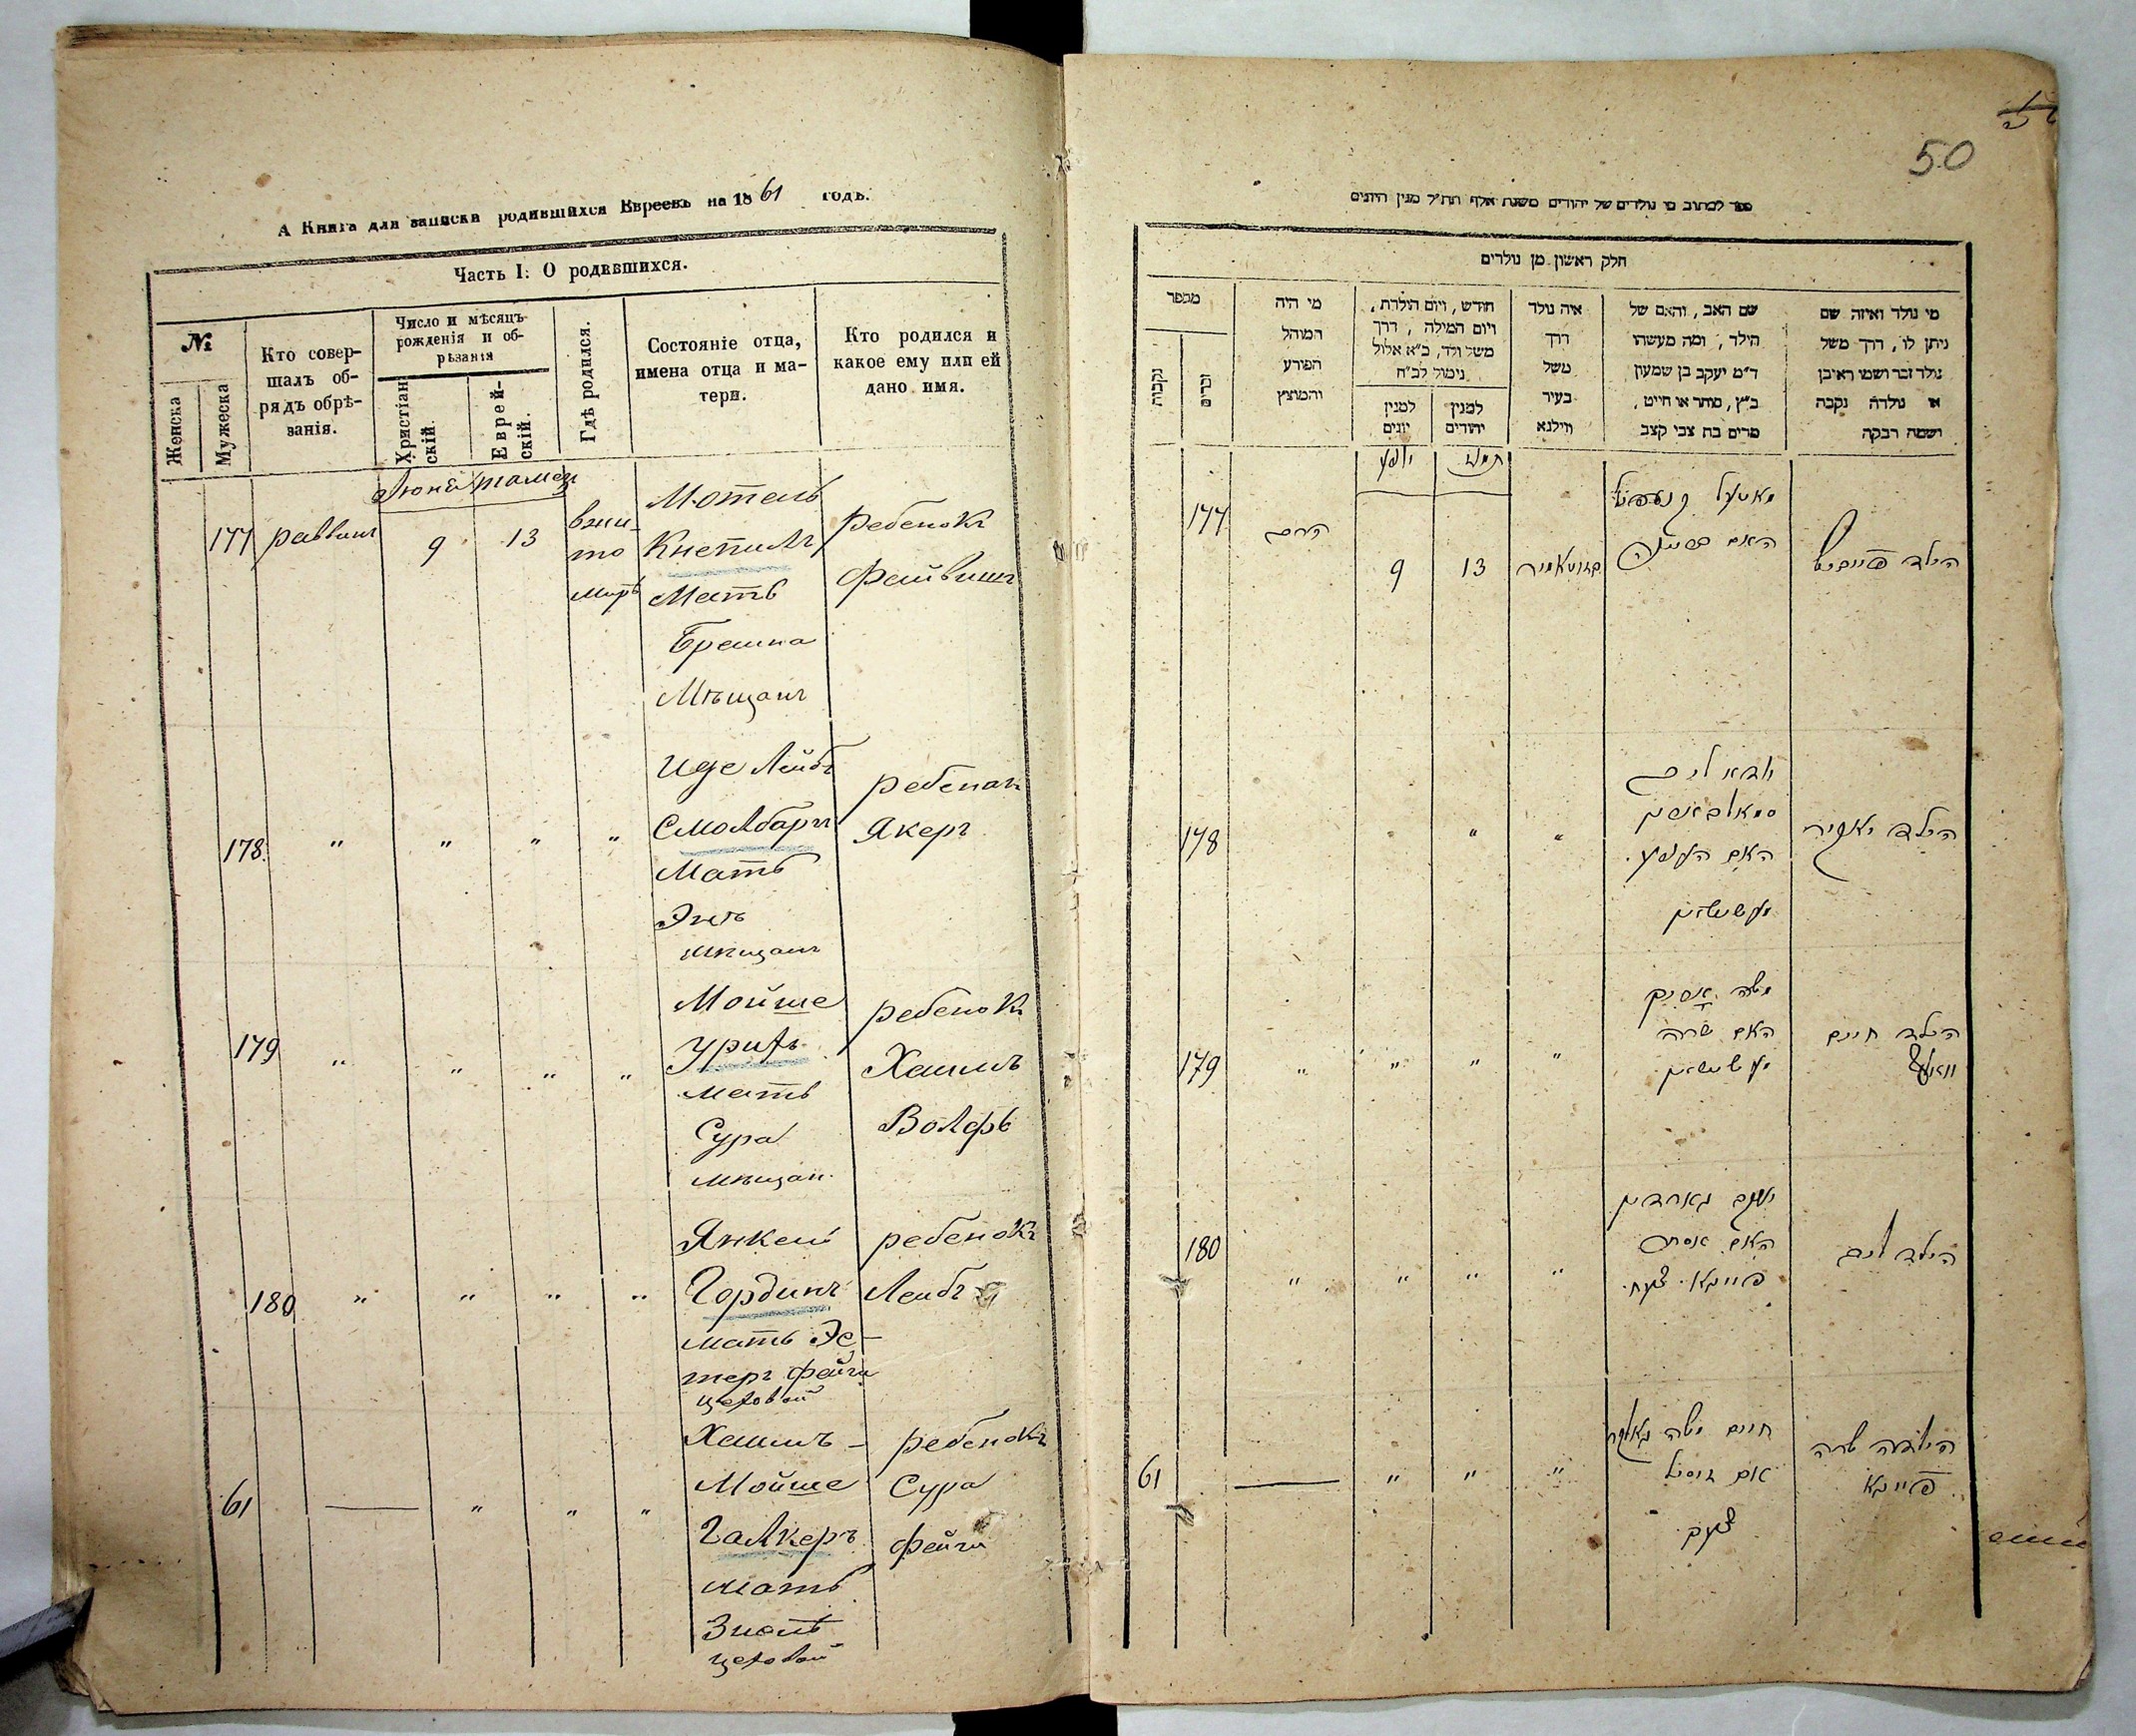 А Книга для записки родившихся Евреевъ на 1861 годъ.
Часть I: О родившихся.
№
Женска
Мужеска
Кто совер-
шалъ об-
рядъ обрѣ-
занія.
Число и мѣсяцъ
рожденія и об-
рѣзанія
Христіан
скій.
Еврей-
скій.
Гдѣ родился.
Состояніе отца,
имена отца и ма-
тери.
Кто родился и
какое ему или ей
дано имя.
177
раввинъ
9
13
вжи-
то
миръ
Мотель
Мать
Брашна
Мѣщанъ
ребенокъ
Файвишъ
178.
"
"
"
"
Иде Лейбъ
Мать
мѣщанъ
Якеръ
179
"
"
"
"
Мойше
мать
Сура
мѣщан.
ребенокъ
Хаимъ
Волфъ
180
"
"
"
"
Янкель
Гординъ
мать Эс-
теръ Фейги
цеховой
ребенокъ
Лейбъ
61
"
"
"
Хаимъ -
Мойше
Галкеръ
мать
цеховой
ребенокъ
Сура
Фейги
50
ספר לכתוב מי נולדים של יהודים משנת אלף תת״ל מנין היונים
חלק ראשון מן נולדים
מספר
נקבות
זכרים
מי היה
המוהל
הפורע
והמוצץ
חודש, ויום הולדת,
ויום המילה, דרך
משל ולד, כ״א אלול
נימול לכ״ח
למנין
יונים
למנין
יהודים
איה נולד
דרך
משל
בעיר
ווילנא
שם האב, והאם של
הילד, ומה מעשהו
ד״מ יעקב בן שמעון
כ״ץ, סוחר או חייט,
מרים בת צבי קצב
מי נולד ואיזה שם
ניתן לו, דרך משל
נולד זכר ושמו ראובן
או נולדה נקבה
ושמה רבקה
יוני
תמוז
177
הרב
9
13
הילד פייביש
178
"
"
הילד יאקיר
179
"
"
"
"
האם שרה
הילד חיים
וואלף
180
"
"
"
"
יעקב גארדין
האם אסתר
פייגא
הילד ליב
61
"
"
"
חיים משה
הילדה שרה
פייגא